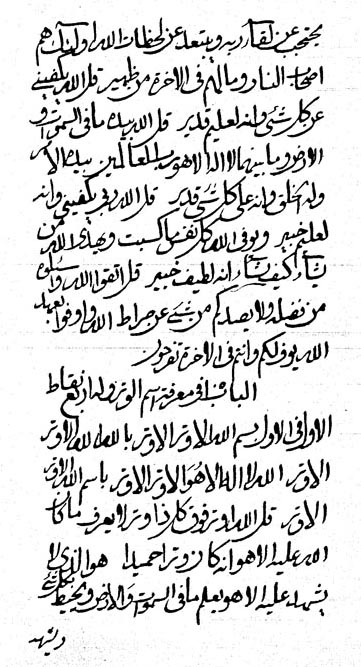 يحتجب عن لقاء ربه ويبتعد عن لحظات الله اولئك هم
اصحاب النار وما لهم في الاخرة من ظهير قل الله يكفيني
عن كل شئ وانه لعليم قدير قل الله بيده ما في السموات و
الارض وما بينهما لا اله الا هو رب العالمين بيده الامر
وله الخلق وانه على كل شئ قدير قل الله ربي يكفيني وانه
لعليم خبير ويوفي الله كل نفس ما كسبت ويهدي الله من
يشاء كيف يشاء انه لطيف خبير قل اتقوا الله واسئلوه
من فضله ولا يصدكم من شئ عن صراط الله واوفوا بعهد
الله يوف لكم وانتم في الاخرة تفرحون
الباب في معرفة اسم الوتر وله اربع نقاط
الاول في الاول بسم الله الاوتر الاوتر بالله الله الاوتر
الاوتر الله لا اله الا هو الاوتر الاوتر باسم الله الاوتر
الاوتر قل الله اوتر فوق كل ذا وتر لا يعرف ما كان
الله عليه الا هو انه كان وترا حميدا هو الذي لا
يشهد عليه الا هو يعلم ما في السموات والارض ويحيط بكل شئ